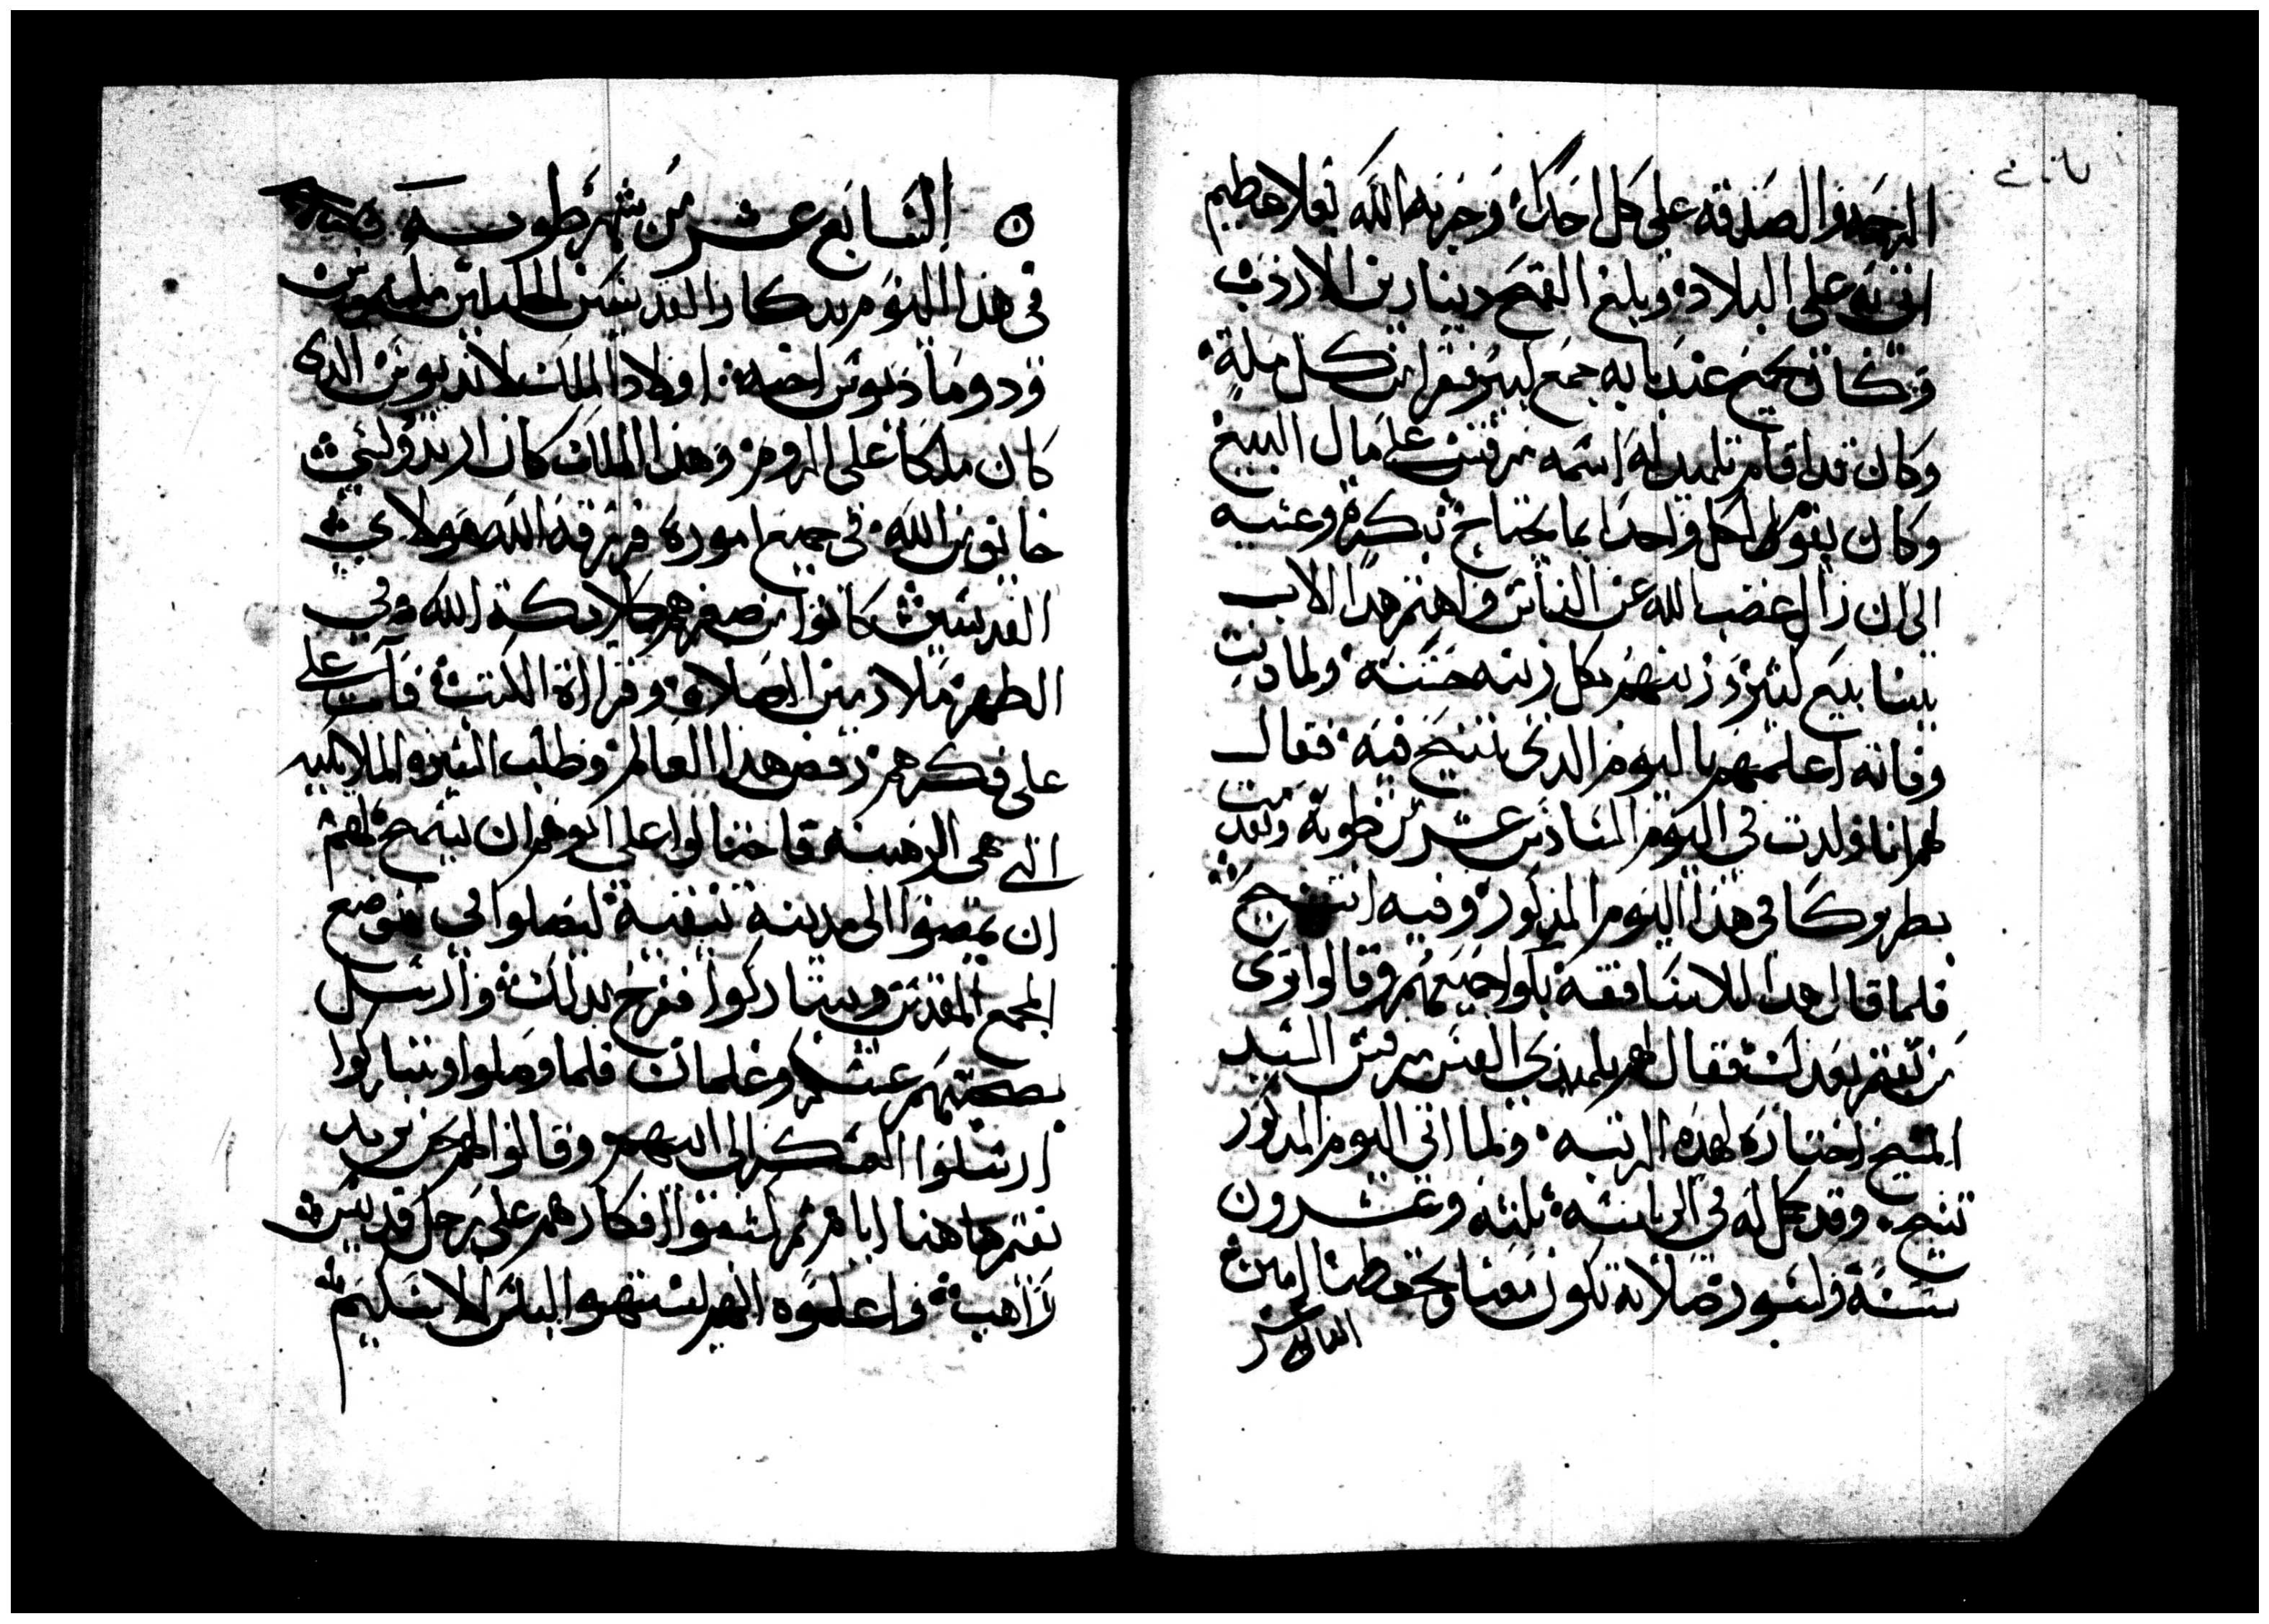 الرحمه والصدقه على كل احدا وجربه الله بغلا عظيم
اتى به على البلاد وبلغ القمح دينارين الاردب
وكان يجتمع عند بابه جمع كبير فقرا من كل ملة
وكان قد اقام تلميد له اسمه مرقس على مال البيع
وكان يقوم لكل واحدا بما يحتاج بكرة وعشيه
الى ان زال غضب الله عن الناس واهتم هدا الاب
ببنا بيع كثير وزينهم بكل زينه حسنه ولما دنت
وفاته اعلمهم باليوم الدى يتنيح فيه فقال
لهم انا ولدت في اليوم السادس عشر من طوبه وتقدمت
بطريركا في هدا اليوم المدكور وفيه اتنيح
فلما قال هدا للاساقفه بكوا جميعهم وقالوا ترى
من يقيم بعدك فقال لهم تلميدي القس مرقس السيد
المسيح اختاره لهده الرتبه ولما اتى اليوم المدكور
تنيح وقد كمل له في الرياسه تلته وعشرون
سنة واشهر صلاته تكون معنا وتحفظنا امين
السابع عشر من شهر طوبه
في هدا اليوم تدكار القديسين الجليلين مكسيموس
ودوماديوس اخيه اولاد الملك لانديونس الدى
كان ملكا على الروم وهدا الملك كان ارتدوكسي
خايف من الله في جميع اموره فرزقه الله هولاى
القديسين كانوا من صغرهم كملايكة الله في
الطهر ملازمين الصلاه وقراأة الكتب فات على
على فكرهم رفض هدا العالم وطلب السيره الملايكيه
التي هى الرهبنه فاحتالوا على ابوهم ان يسمح لهم
ان يمضوا الى مدينة نيقية ليصلوا في موضع
المجمع المقدس ويتباركوا ففرح بدلك وارسل
بصحبتهم عسكر وغلمان فلما وصلوا وتباركوا
ارسلوا العسكر الى ابيهم وقالوا لهم نحن نريد
نقيم هاهنا ايام ثم كشفوا افكارهم على رجل قديس
راهب واعلموه انهم اشتهوا لباس الاسكيم